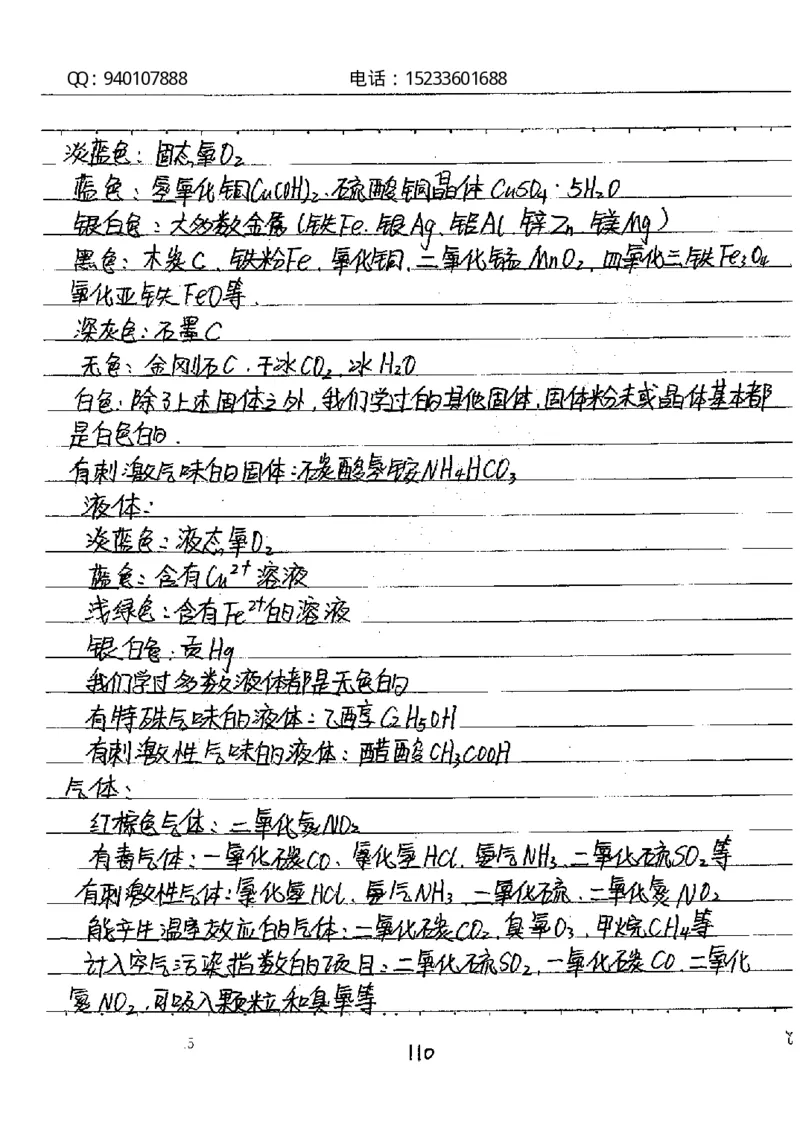 QQ：940107888 电话：15233601688
淡蓝色：固态氧O₂
蓝色：氢氧化铜Cu(OH)₂、硫酸铜晶体 CuSO₄·5H₂O
银白色：大多数金属（铁Fe、银Ag、铝Al、锌Zn、镁Mg）
黑色：木炭C、铁粉Fe、氧化铜、二氧化锰MnO₂、四氧化三铁Fe₃O₄
氧化亚铁FeO等.
深灰色：石墨C
无色：金刚石C、干冰CO₂、冰H₂O
白色：除了上述固体之外，我们学过的其他固体，固体粉末或晶体基本都
是白色的.
有刺激气味的固体：碳酸氢铵NH₄HCO₃
液体：
淡蓝色：液态氧O₂
蓝色：含有Cu²⁺溶液
浅绿色：含有Fe²⁺的溶液
银白色：汞Hg
我们学过多数液体都是无色的
有特殊气味的液体：乙醇C₂H₅OH
有刺激性气味的液体：醋酸CH₃COOH
气体：
红棕色气体：二氧化氮NO₂
有毒气体：一氧化碳CO、氯化氢HCl、氨气NH₃、二氧化硫SO₂等
有刺激性气体：氯化氢HCl、氨气NH₃、二氧化硫、二氧化氮NO₂
能产生温室效应的气体：二氧化碳CO₂、臭氧O₃、甲烷CH₄等
计入空气污染指数的项目：二氧化硫SO₂、一氧化碳CO、二氧化
氮NO₂、可吸入颗粒和臭氧等
5
110